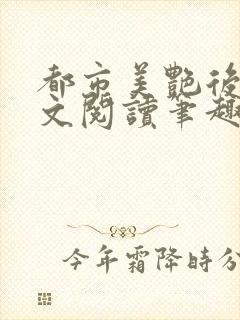 都市美艷後
文閱讀筆趣
今年霜降時分